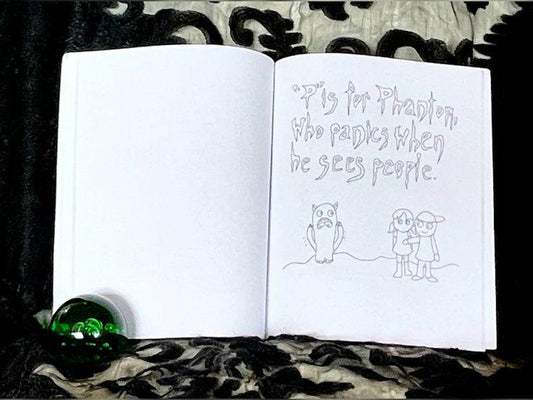 "P" is for Phantom,
Who panics when
he sees people.